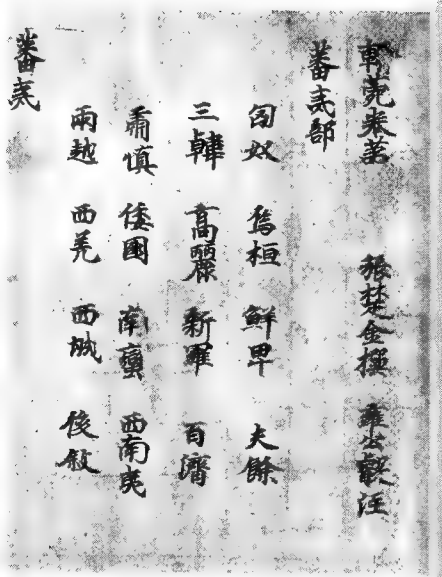 翰苑卷苐 張楚金撰 雍公叡注
蕃夷部
匈奴 烏桓 鮮卑 夫餘
三韓 高麗 新羅 百濟
肅慎 倭國 南蠻 西南夷
兩越 西羌 西域 後敘
蕃夷